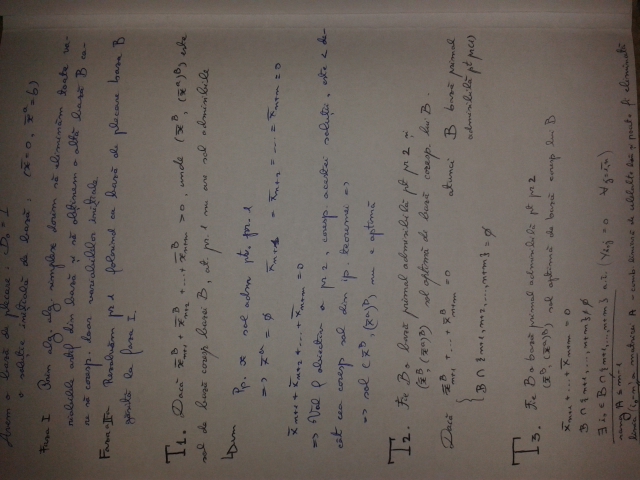 Avem o bază de plecare: B₀ = I
o soluție inițială de bază: (x̄=0, x̄ᵃ=b)
Faza I Prin alg. alg. simplex dorim să eliminăm toate va-
riabilele artif din bază și să obținem o altă bază B ca-
re să coresp. doar variabilelor inițiale
Faza II Rezolvăm pr 1 folosind ca bază de plecare baza B
găsită la faza I.
T1. Dacă x̄ᴮₙ₊₁ + x̄ᴮₙ₊₂ + ... + x̄ᴮₙ₊ₘ > 0, unde (x̄ᴮ, (x̄ᵃ)ᴮ) este
sol de bază coresp bazei B, at. pr. 1 nu are sol admisibile
Dem
Pp. x sol adm pt. pr. 1
=> x̄ᵃ = ∅ x̄ₙ₊₁ = x̄ₙ₊₂ = ... = x̄ₙ₊ₘ = 0
x̄ₙ₊₁ + x̄ₙ₊₂ + ... + x̄ₙ₊ₘ = 0
=> Val f obiectiv a pr 2, coresp. acestei soluții, este < de-
cât cea coresp sol din ip. teoremei =>
=> sol (x̄ᴮ, (x̄ᵃ)ᴮ) nu e optimă
T2. Fie B o bază primal admisibilă pt pr 2 și
(x̄ᴮ, (x̄ᵃ)ᴮ) sol optimă de bază coresp. lui B.
Dacă { x̄ᴮₙ₊₁ + ... + x̄ᴮₙ₊ₘ = 0 atunci B bază primal
admisibilă pt pr(1)
B ∩ {n+1, n+2, ..., n+m} = ∅
T3. Fie B o bază primal admisibilă pt pr 2
(x̄ᴮ, (x̄ᵃ)ᴮ) sol optimă de bază coresp lui B
x̄ₙ₊₁ + ... + x̄ₙ₊ₘ = 0
B ∩ {n+1, ..., n+m} ≠ ∅
∃ i₀ ∈ B ∩ {n+1, ..., n+m} a.î. (Yᵢ₀ⱼ = 0 ∀ j=1,n)
rang A ≤ m-1
linia (i₀-n) a matricei A - comb. liniară de celelalte linii și poate fi eliminată